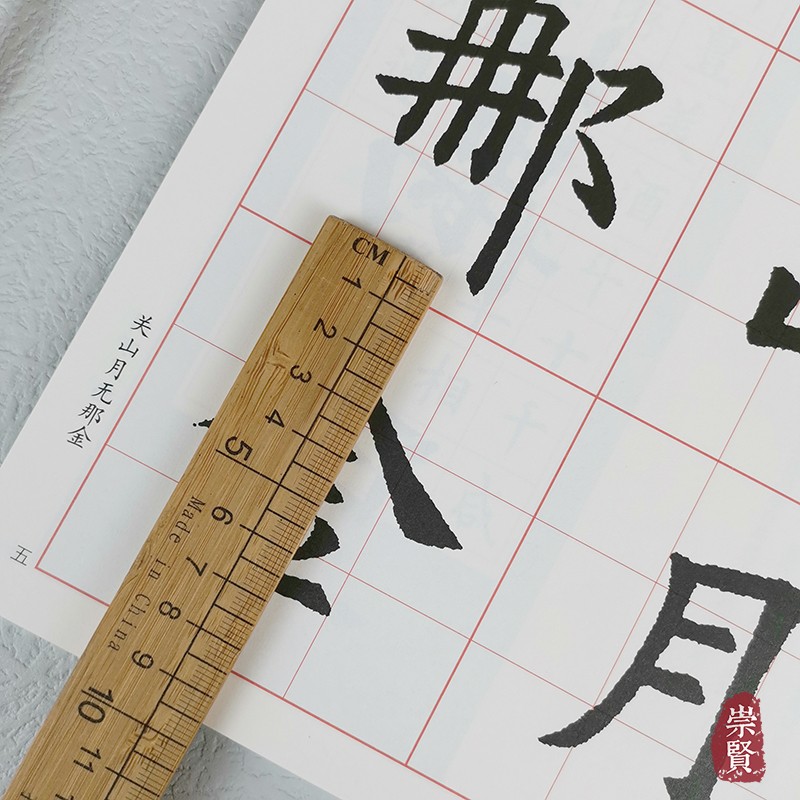 那
山
月
金
关山月无那金
五
CM
1 2 3 4 5 6 7 8 9 10 11
Made in China
崇賢